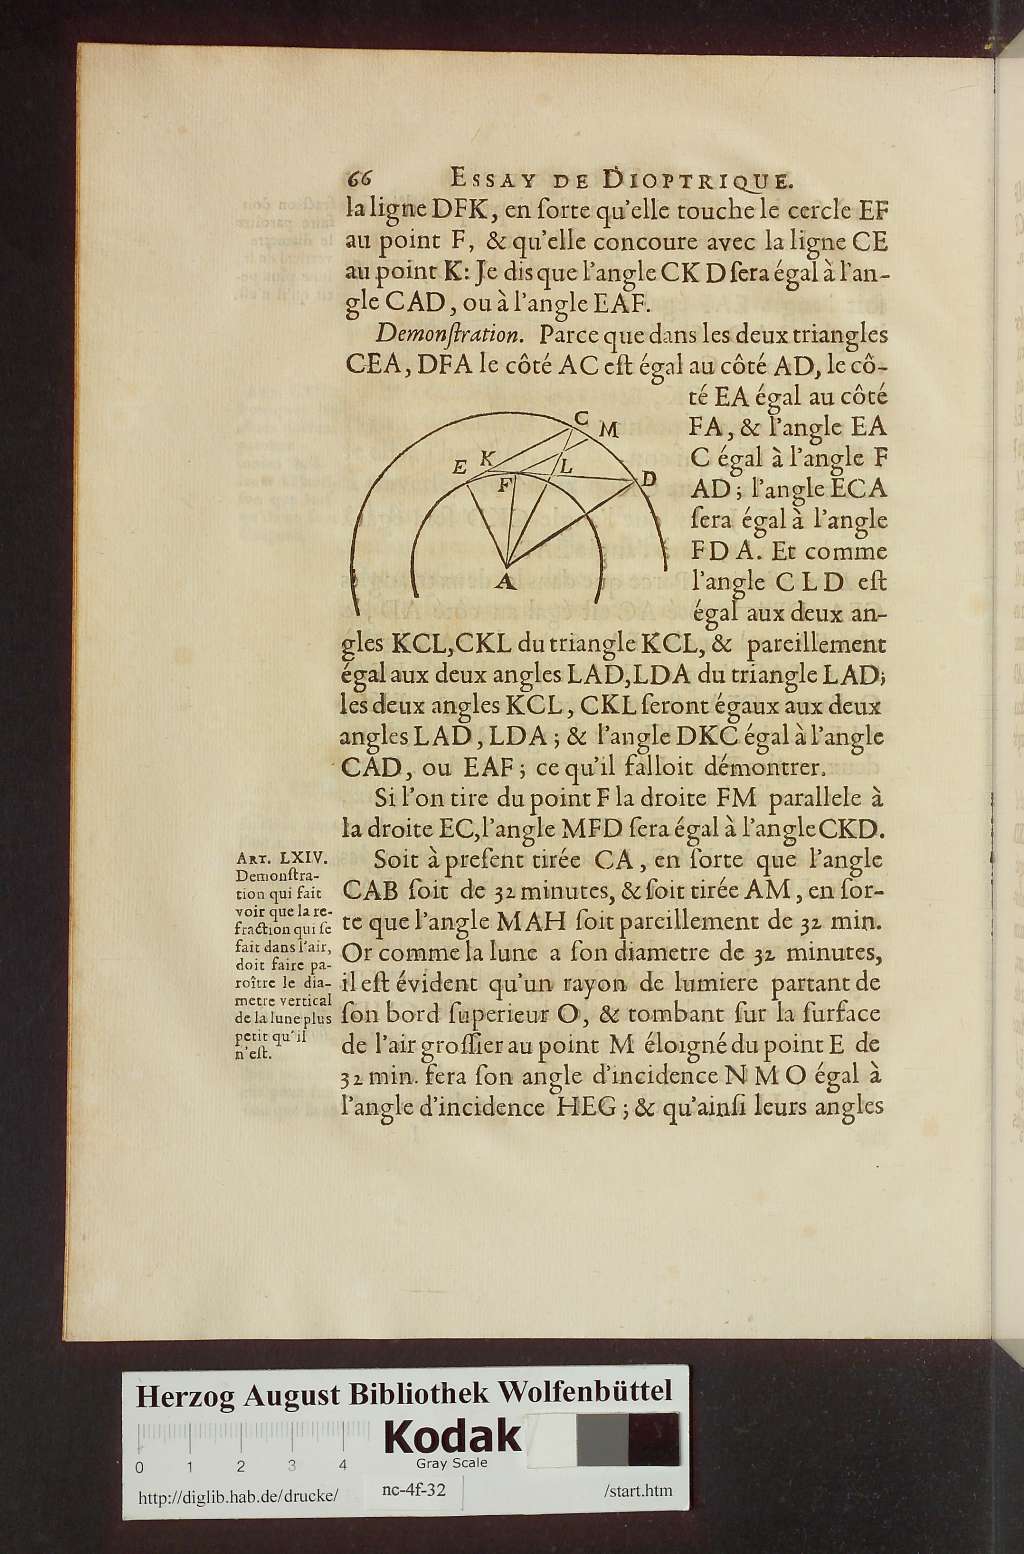 66 ESSAY DE DIOPTRIQUE.
la ligne DFK, en ſorte qu'elle touche le cercle EF
au point F, & qu'elle concoure avec la ligne CE
au point K: Je dis que l'angle CKD ſera égal à l'an-
gle CAD, ou à l'angle EAF.
Demonſtration. Parce que dans les deux triangles
CEA, DFA le côté AC eſt égal au côté AD, le cô-
té EA égal au côté
FA, & l'angle EA
C égal à l'angle F
AD; l'angle ECA
ſera égal à l'angle
FDA. Et comme
l'angle CLD eſt
égal aux deux an-
C
M
E
K
L
F
D
A
gles KCL, CKL du triangle KCL, & pareillement
égal aux deux angles LAD, LDA du triangle LAD;
les deux angles KCL, CKL ſeront égaux aux deux
angles LAD, LDA; & l'angle DKC égal à l'angle
CAD, ou EAF; ce qu'il falloit démontrer.
Si l'on tire du point F la droite FM parallele à
la droite EC, l'angle MFD ſera égal à l'angle CKD.
ART. LXIV.
Demonſtra-
tion qui fait
voir que la re-
fraction qui ſe
fait dans l'air,
doit faire pa-
roître le dia-
metre vertical
de la lune plus
petit qu'il
n'eſt.
Soit à preſent tirée CA, en ſorte que l'angle
CAB ſoit de 32 minutes, & ſoit tirée AM, en ſor-
te que l'angle MAH ſoit pareillement de 32 min.
Or comme la lune a ſon diametre de 32 minutes,
il eſt évident qu'un rayon de lumiere partant de
ſon bord ſuperieur O, & tombant ſur la ſurface
de l'air groſſier au point M éloigné du point E de
32 min. ſera ſon angle d'incidence NMO égal à
l'angle d'incidence HEG; & qu'ainſi leurs angles
Herzog August Bibliothek Wolfenbüttel
Kodak
Gray Scale
0 1 2 3 4
http://diglib.hab.de/drucke/ nc-4f-32 /start.htm